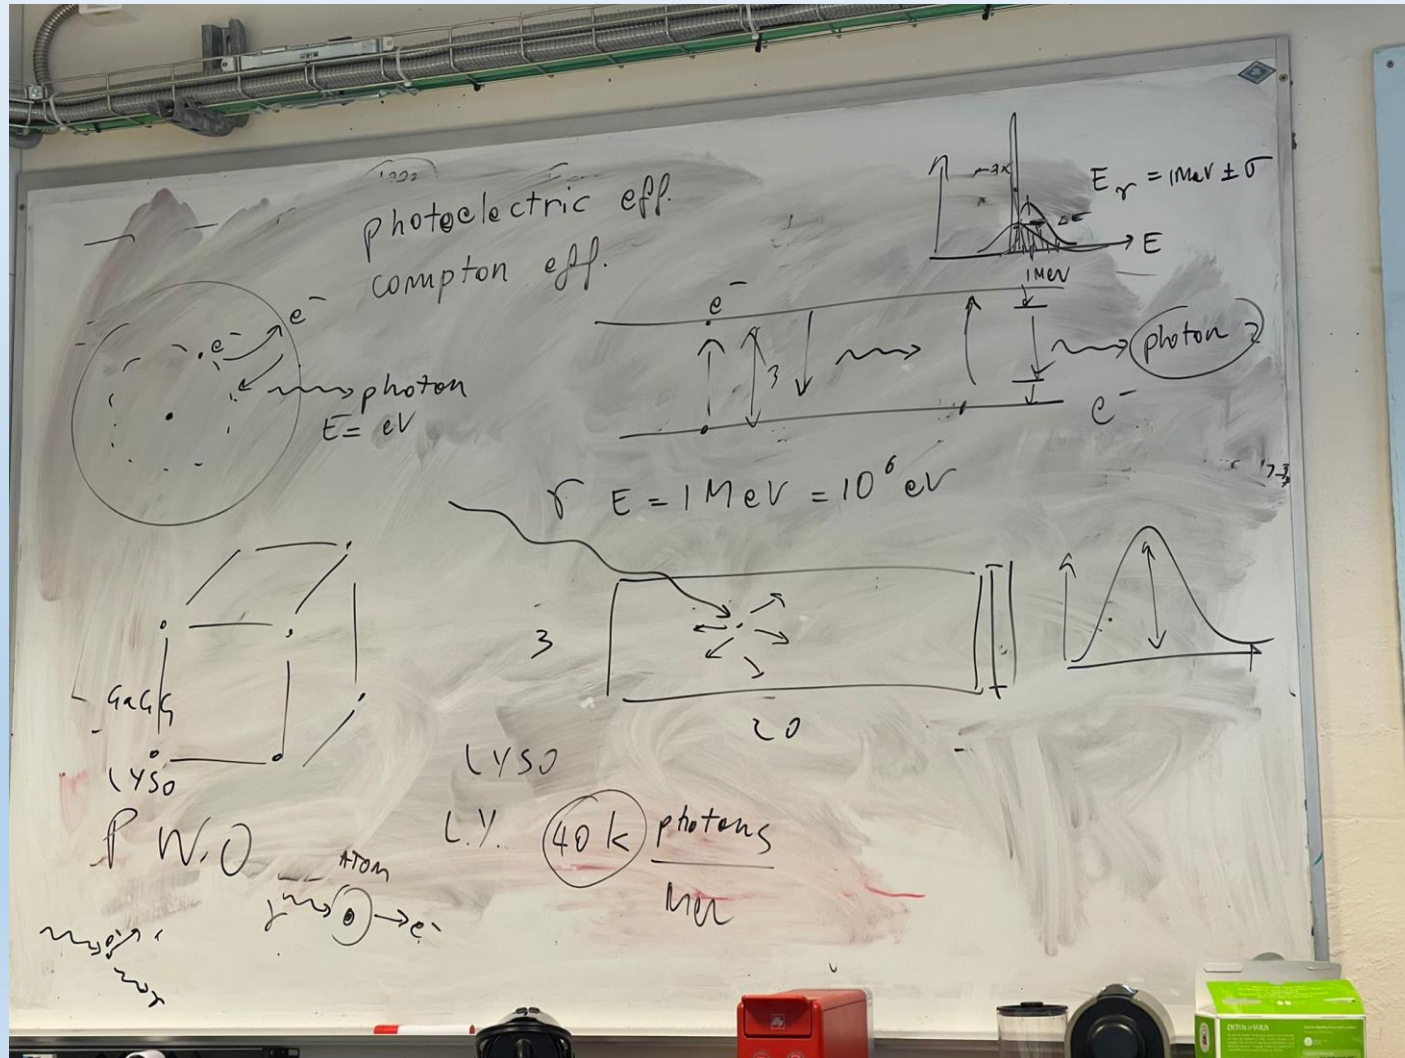 photoelectric eff.
compton eff.
E_γ = 1 MeV ± σ
ΔE
E
1 MeV
e⁻
e⁻
photon
E = eV
e⁻
3
photon
e⁻
γ E = 1 MeV = 10⁶ eV
3
20
GaGG
LYSO
PWO
LYSO
L.Y. 40k photons
MeV
ATOM
γ
e⁻
γ
illy
DETOX & VOUS